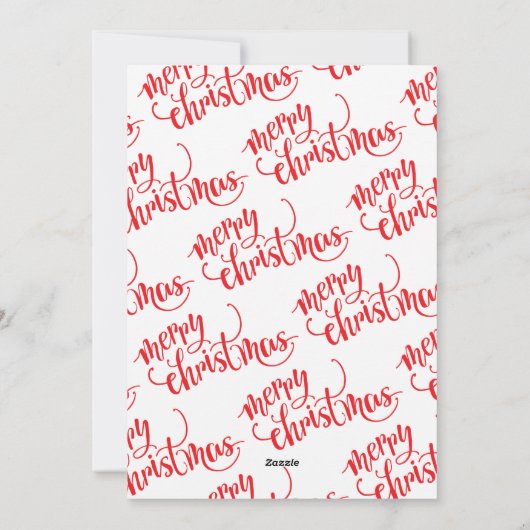 merry
christmas
merry
christmas
merry
christmas
merry
christmas
merry
christmas
merry
christmas
merry
christmas
merry
christmas
merry
christmas
Zazzle
merry